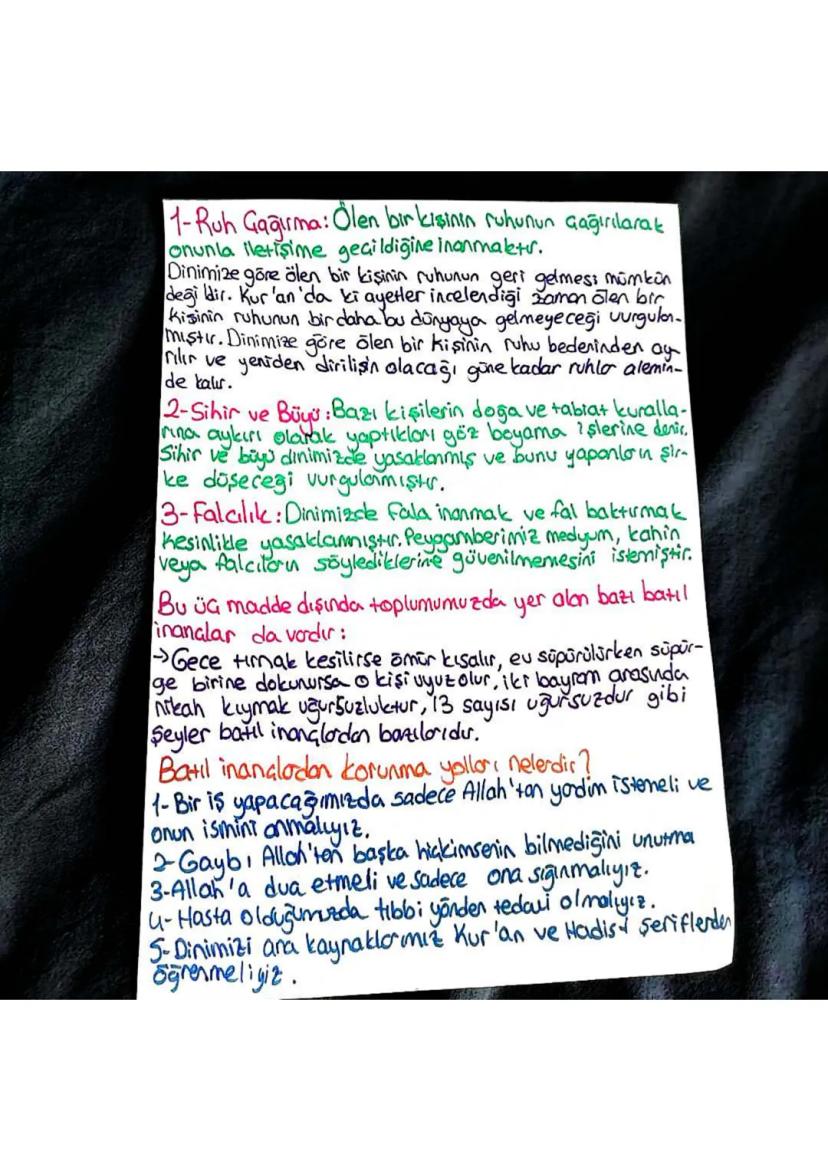 1-Ruh Çağırma: Ölen bir kişinin ruhunun çağırılarak
onunla iletişime geçildiğine inanmaktır.
Dinimize göre ölen bir kişinin ruhunun geri gelmesi mümkün
değildir. Kur'an'da ki ayetler incelendiği zaman ölen bir
kişinin ruhunun bir daha bu dünyaya gelmeyeceği vurgulan-
mıştır. Dinimize göre ölen bir kişinin ruhu bedeninden ay-
rılır ve yeniden dirilişin olacağı güne kadar ruhlar alemin-
de kalır.
2-Sihir ve Büyü: Bazı kişilerin doğa ve tabiat kuralla-
rına aykırı olarak yaptıkları göz boyama işlerine denir.
Sihir ve büyü dinimizde yasaklanmış ve bunu yapanların şir-
ke düşeceği vurgulanmıştır.
3-Falcılık: Dinimizde fala inanmak ve fal baktırmak
kesinlikle yasaklanmıştır. Peygamberimiz medyum, kahin
veya falcıların söylediklerine güvenilmemesini istemiştir.
Bu üç madde dışında toplumumuzda yer alan bazı batıl
inançlar da vardır:
→Gece tırnak kesilirse ömür kısalır, ev süpürülürken süpür-
ge birine dokunursa o kişi uyuz olur, iki bayram arasında
nikah kıymak uğursuzluktur, 13 sayısı uğursuzdur gibi
şeyler batıl inançlardan bazılarıdır.
Batıl inançlardan korunma yolları nelerdir?
1-Bir iş yapacağımızda sadece Allah'tan yardım istemeli ve
onun ismini anmalıyız.
2-Gaybı Allah'tan başka hiçkimsenin bilmediğini unutma
3-Allah'a dua etmeli ve sadece ona sığınmalıyız.
4-Hasta olduğumuzda tıbbi yönden tedavi olmalıyız.
5-Dinimizi ana kaynaklarımız Kur'an ve Hadis-i Şeriflerden
öğrenmeliyiz.